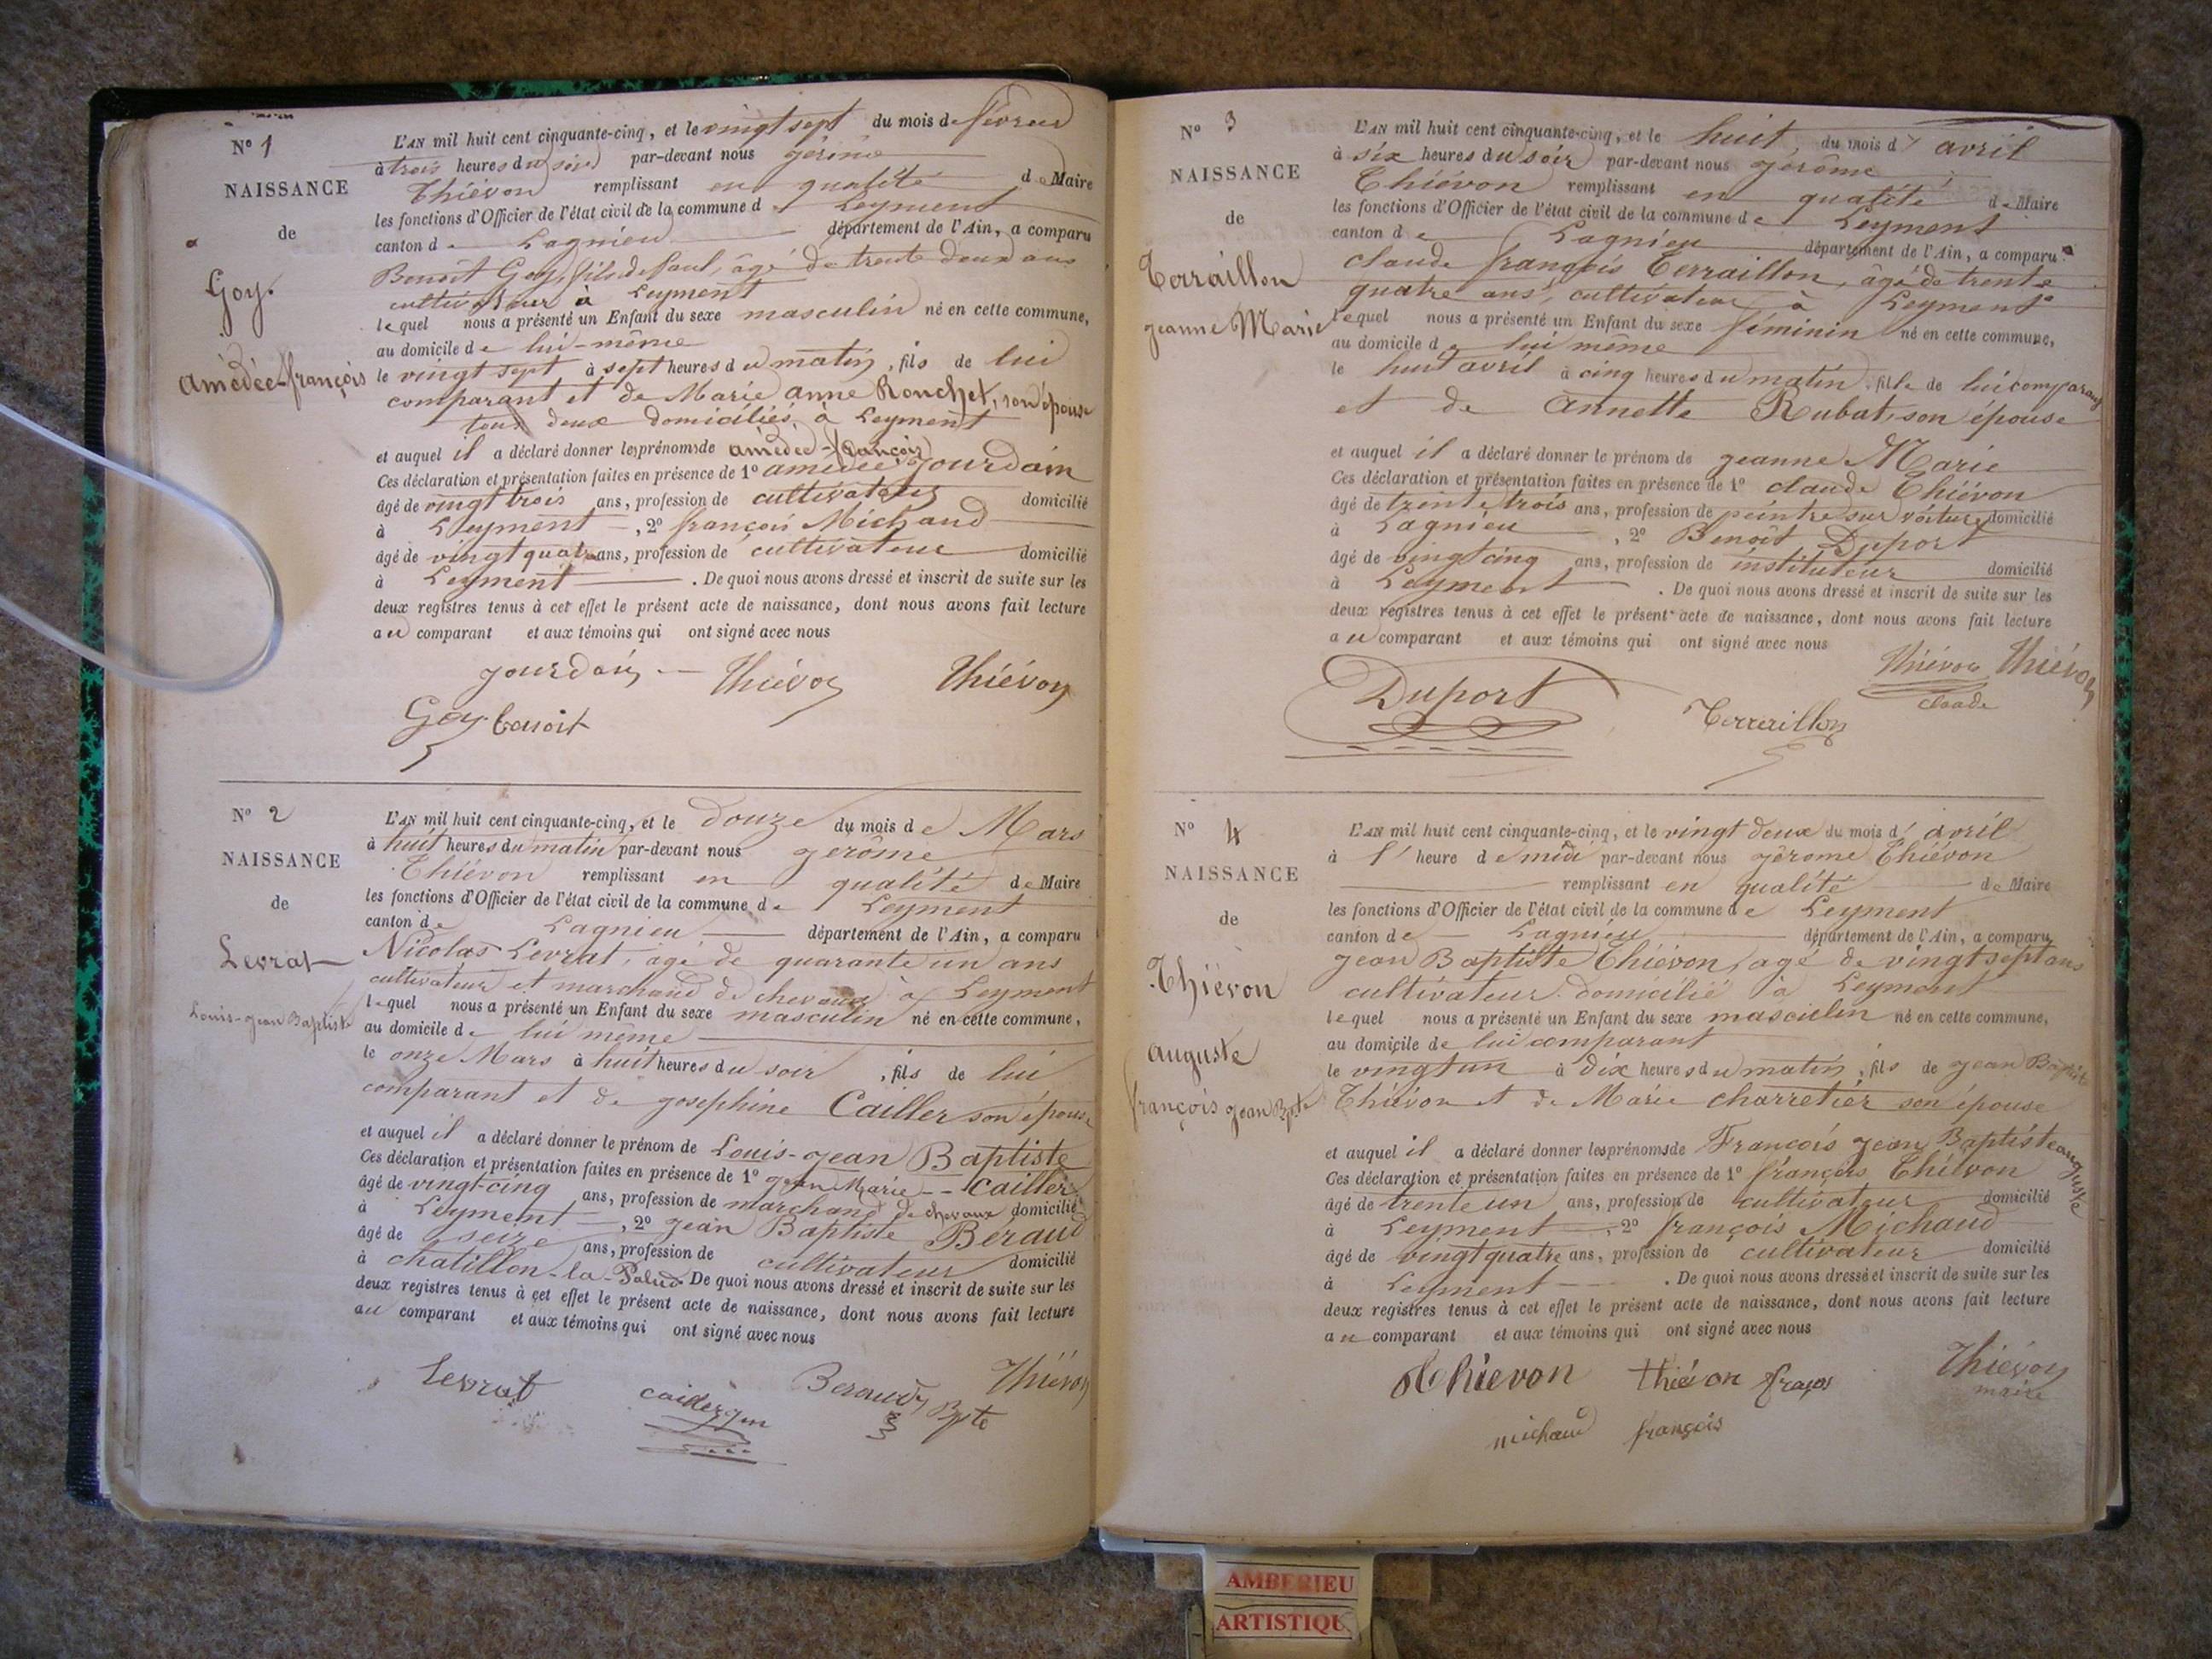 N° 1
NAISSANCE
de
Goy
amédée-françois
L'AN mil huit cent cinquante-cinq, et le vingt sept du mois de février
à trois heures du soir par-devant nous
Thiévon remplissant en qualité de Maire
les fonctions d'Officier de l'état civil de la commune de Leyment
canton de Lagnieu département de l'Ain, a comparu
Benoit Goy, fils de Paul, âgé de trente deux ans
cultivateur à Leyment
lequel nous a présenté un Enfant du sexe masculin né en cette commune,
au domicile de lui-même
le vingt sept à sept heures du matin, fils de lui
comparant et de Marie anne Ronchet, son épouse
tous deux domiciliés à Leyment
et auquel il a déclaré donner les prénoms de amédée-françois
Ces déclaration et présentation faites en présence de 1° amédée Jourdain
âgé de vingt trois ans, profession de cultivateur domicilié
à Leyment, 2° françois Michaud
âgé de vingt quatre ans, profession de cultivateur domicilié
à Leyment. De quoi nous avons dressé et inscrit de suite sur les
deux registres tenus à cet effet le présent acte de naissance, dont nous avons fait lecture
au comparant et aux témoins qui ont signé avec nous
Jourdain Thiévon Thiévon
Goy benoit
N° 2
NAISSANCE
de
Levrat
Louis-jean Baptiste
L'AN mil huit cent cinquante-cinq, et le douze du mois de Mars
à huit heures du matin par-devant nous gerôme
Thiévon remplissant en qualité de Maire
les fonctions d'Officier de l'état civil de la commune de Leyment
canton de Lagnieu département de l'Ain, a comparu
Nicolas Levrat, âgé de quarante un ans
cultivateur et marchand de chevaux à Leyment
lequel nous a présenté un Enfant du sexe masculin né en cette commune,
au domicile de lui même
le onze Mars à huit heures du soir, fils de lui
comparant et de josephine Cailler son épouse
et auquel il a déclaré donner le prénom de Louis-jean Baptiste
Ces déclaration et présentation faites en présence de 1° jean Marie Cailler
âgé de vingt-cinq ans, profession de marchand de chevaux domicilié
à Leyment, 2° jean Baptiste Béraud
âgé de seize ans, profession de cultivateur domicilié
à chatillon-la-Palud. De quoi nous avons dressé et inscrit de suite sur les
deux registres tenus à cet effet le présent acte de naissance, dont nous avons fait lecture
au comparant et aux témoins qui ont signé avec nous
Levrat Beraud Bpte Thiévon
N° 3
NAISSANCE
de
Terraillon
jeanne Marie
L'AN mil huit cent cinquante-cinq, et le huit du mois d' avril
à six heures du soir par-devant nous gérôme
Thiévon remplissant en qualité de Maire
les fonctions d'Officier de l'état civil de la commune de Leyment
canton de Lagnieu département de l'Ain, a comparu
claude françois Terraillon, âgé de trente
quatre ans, cultivateur à Leyment
lequel nous a présenté un Enfant du sexe féminin né en cette commune,
au domicile de lui même
le huit avril à cinq heures du matin, fille de lui comparant
et de Annette Rubat, son épouse
et auquel il a déclaré donner le prénom de jeanne Marie
Ces déclaration et présentation faites en présence de 1° claude Thiévon
âgé de trente trois ans, profession de peintre sur voiture domicilié
à Lagnieu, 2° Benoit Duport
âgé de vingt cinq ans, profession de instituteur domicilié
à Leyment. De quoi nous avons dressé et inscrit de suite sur les
deux registres tenus à cet effet le présent acte de naissance, dont nous avons fait lecture
au comparant et aux témoins qui ont signé avec nous
Thiévon Thiévon
Duport Terraillon claude
N° 4
NAISSANCE
de
Thiévon
auguste
françois jean Bpte
L'AN mil huit cent cinquante-cinq, et le vingt deux du mois d' avril
à l' heure de midi par-devant nous gérome Thiévon
remplissant en qualité de Maire
les fonctions d'Officier de l'état civil de la commune de Leyment
canton de Lagnieu département de l'Ain, a comparu
jean Baptiste Thiévon, agé de vingt sept ans
cultivateur domicilié à Leyment
lequel nous a présenté un Enfant du sexe masculin né en cette commune,
au domicile de lui comparant
le vingt un à dix heures du matin, fils de jean Baptiste
Thiévon et de Marie charretier son épouse
et auquel il a déclaré donner les prénoms de François jean Baptiste auguste
Ces déclaration et présentation faites en présence de 1° françois Thiévon
âgé de trente un ans, profession de cultivateur domicilié
à Leyment, 2° françois Michaud
âgé de vingt quatre ans, profession de cultivateur domicilié
à Leyment. De quoi nous avons dressé et inscrit de suite sur les
deux registres tenus à cet effet le présent acte de naissance, dont nous avons fait lecture
au comparant et aux témoins qui ont signé avec nous
Thiévon thiévon Thiévon
maire
michaud françois
AMBERIEU
ARTISTIQU